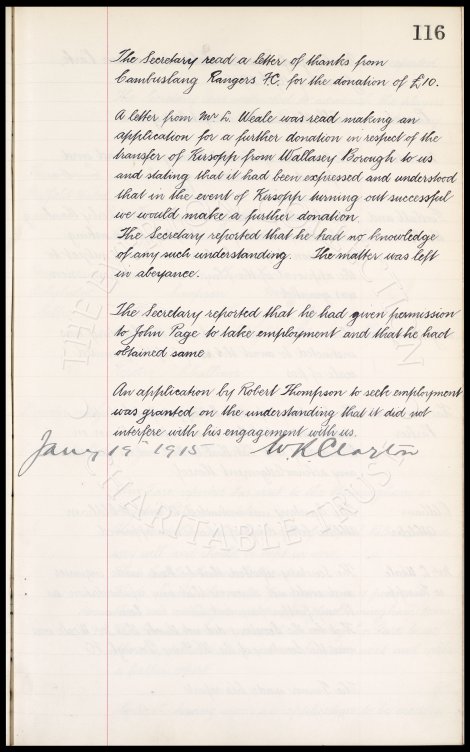 116
The Secretary read a letter of thanks from
Cambuslang Rangers FC. for the donation of £10.
A letter from Mr L. Weale was read making an
application for a further donation in respect of the
transfer of Kirsopp from Wallasey Borough to us
and stating that it had been expressed and understood
that in the event of Kirsopp turning out successful
we would make a further donation.
The Secretary reported that he had no knowledge
of any such understanding. The matter was left
in abeyance.
The Secretary reported that he had given permission
to John Page to take employment and that he had
obtained same
An application by Robert Thompson to seek employment
was granted on the understanding that it did not
interfere with his engagement with us.
Jany 19 - 1915 W R Clayton
CHARITABLE TRUST